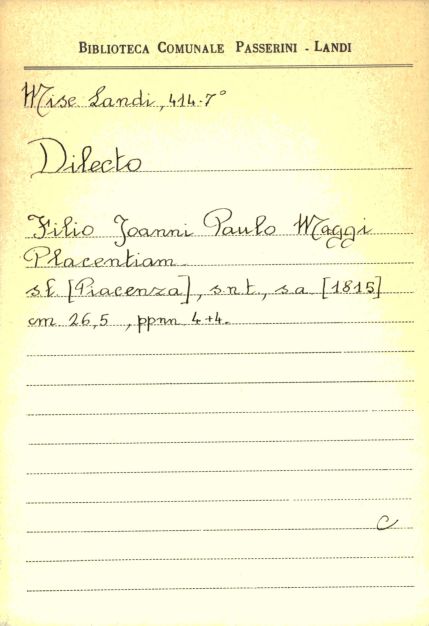 BIBLIOTECA COMUNALE PASSERINI - LANDI
Misc Landi, 414.7°
Dilecto
Filio Joanni Paulo Maggi
Placentiam.
sl [Piacenza], snt, sa [1815]
cm 26,5, ppnn 4+4.
C